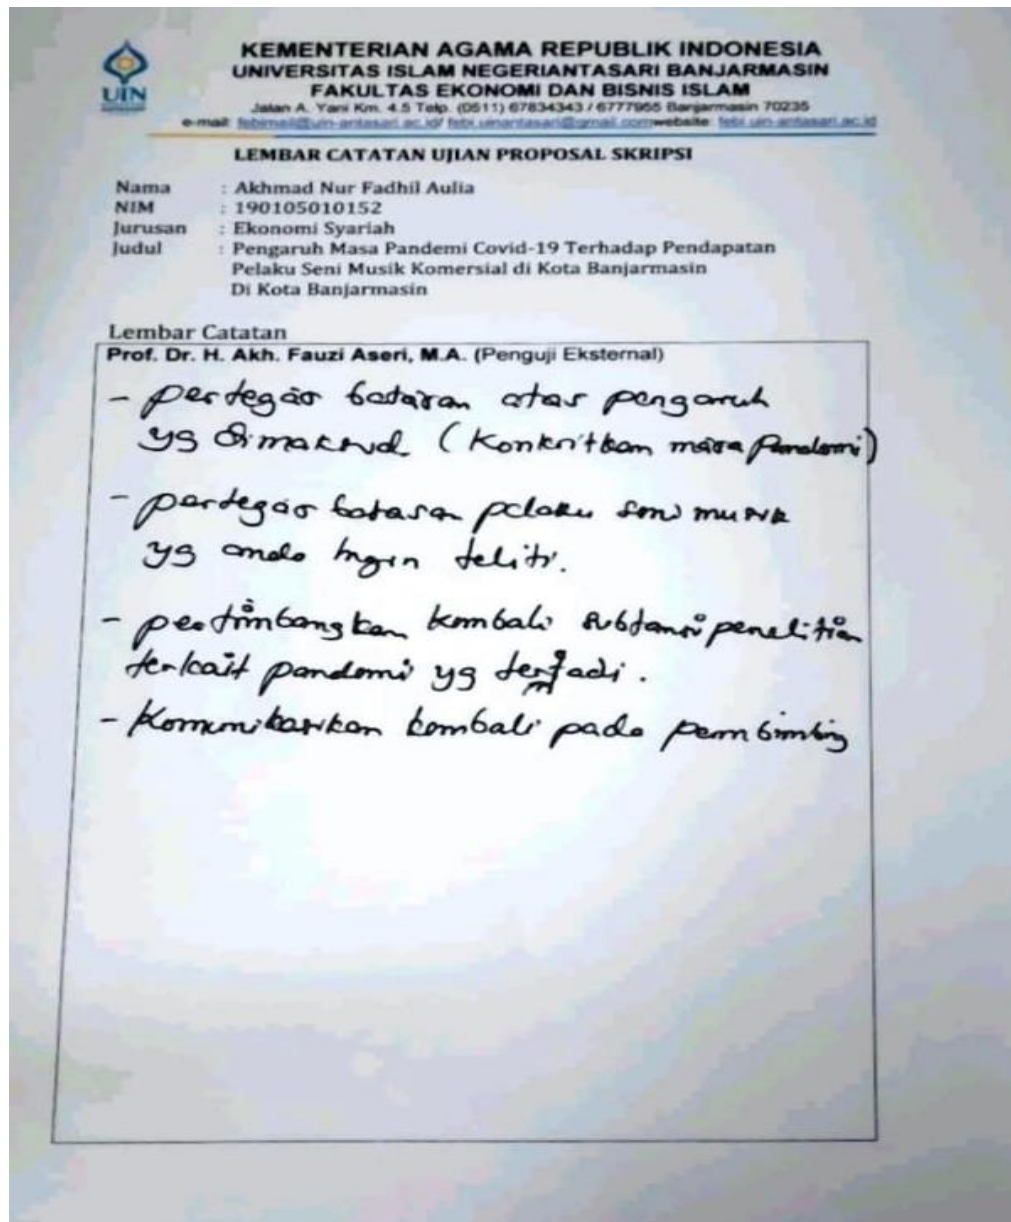 UIN
KEMENTERIAN AGAMA REPUBLIK INDONESIA
UNIVERSITAS ISLAM NEGERIANTASARI BANJARMASIN
FAKULTAS EKONOMI DAN BISNIS ISLAM
Jalan A. Yani Km. 4.5 Telp. (0511) 67834343 / 6777955 Banjarmasin 70235
e-mail: febimail@uin-antasari.ac.id/ febi.uinantasari@gmail.comwebsite: febi.uin-antasari.ac.id
LEMBAR CATATAN UJIAN PROPOSAL SKRIPSI
Nama : Akhmad Nur Fadhil Aulia
NIM : 190105010152
Jurusan : Ekonomi Syariah
Judul : Pengaruh Masa Pandemi Covid-19 Terhadap Pendapatan
Pelaku Seni Musik Komersial di Kota Banjarmasin
Di Kota Banjarmasin
Lembar Catatan
Prof. Dr. H. Akh. Fauzi Aseri, M.A. (Penguji Eksternal)
- pertegas batasan atas pengaruh
yg dimaksud (Konkritkan masa pandemi)
- pertegas batasan pelaku seni musik
yg anda ingin teliti.
- pertimbangkan kembali substansi penelitian
terkait pandemi yg terjadi.
- Komunikasikan kembali pada pembimbing